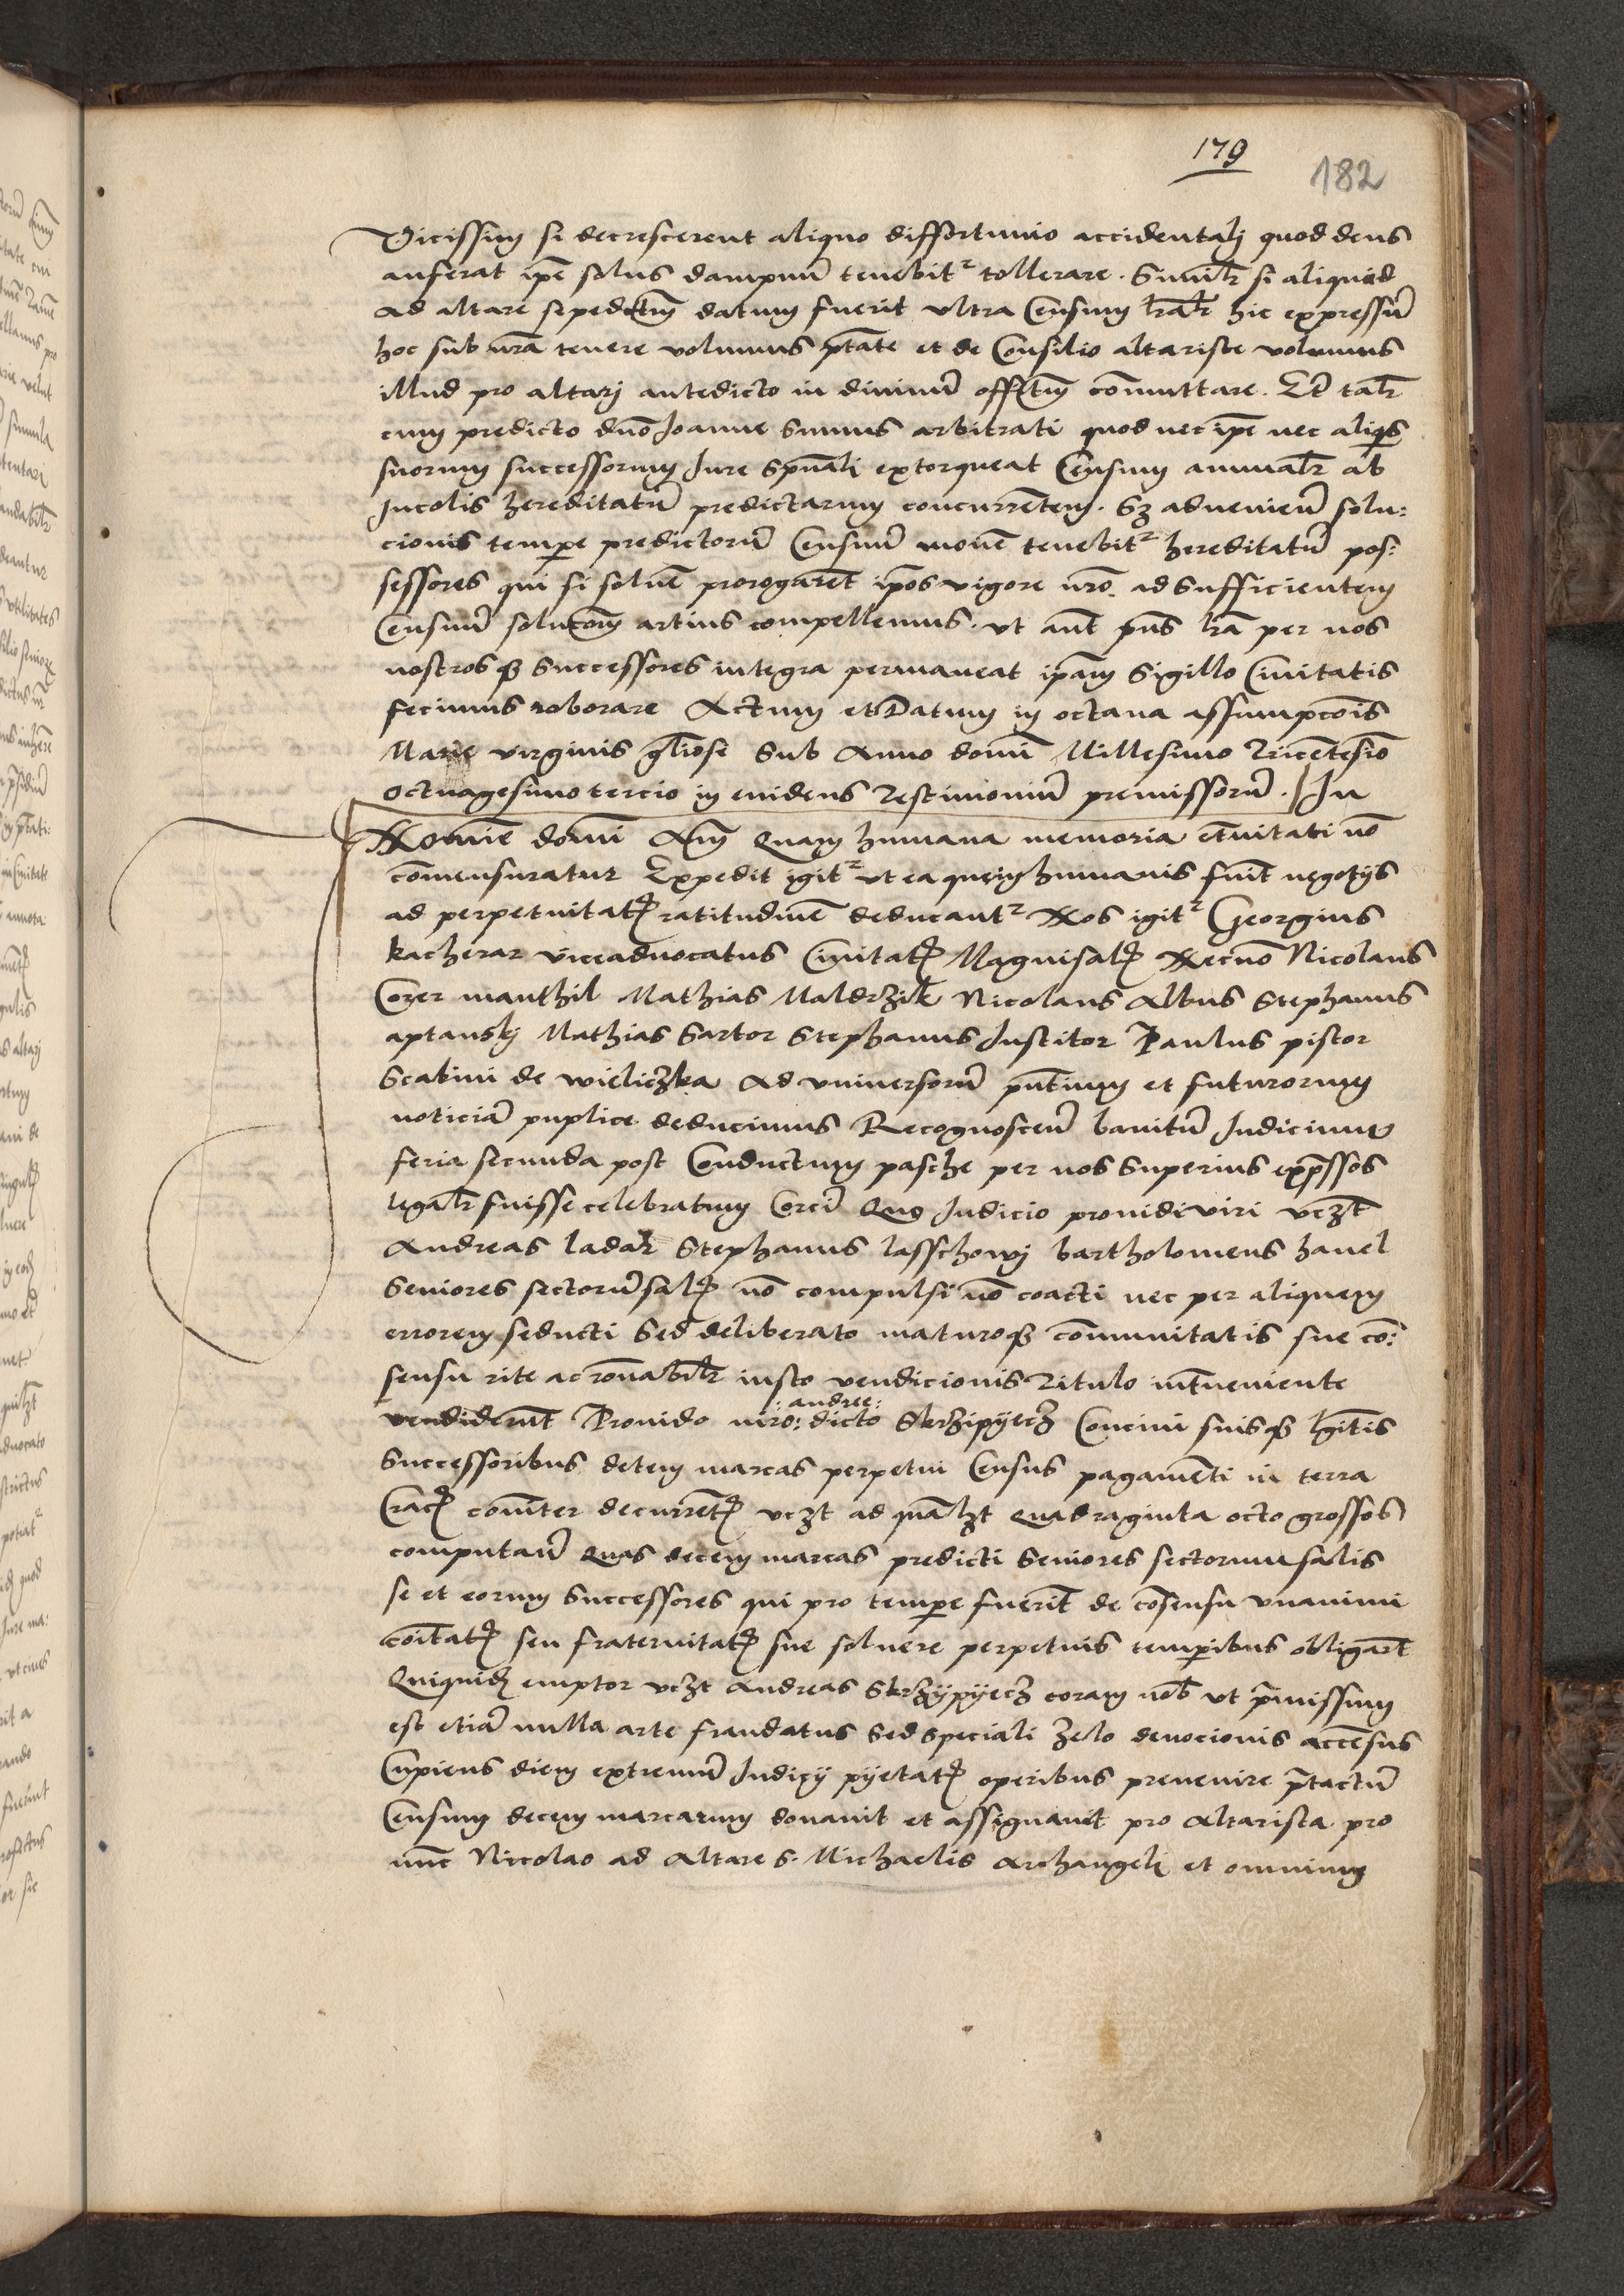 179
182
Vicissim si decrescerent aliquo diffortunio accidentalj quod deus
auferat ip̄e solus dampnū tenebit᷑ tollerare . Simil̄r si aliquid
ad altare sepedc̄tum datum fuerit ultra Censum l̄ral̄r hic expressū
hoc sub nr̄a tenere volumus p̄tate et de Consilio altariste volumus
illud pro altarj antedicto in diuinū off̄m com̄uttare . Et tal̄r
cum predicto dn̄o Joanne sumus arbitrati quod nec ip̄e nec aliq̄s
suorum successorum Jure sp̄uali extorqueat Censum annual̄r ab
Jncolis hereditatū predictarum concurrentem . Sꝫ adveniēn̄ solu:
cionis tempꝑe predictorū Censuū monē tenebit᷑ hereditatū pos:
sessores qui si soluē prorogarēt ip̄os vigore nr̄o . ad Sufficientem
Censuū soluc̄om artius compellemus . ut aūt p̄ns lr̄a per nos
nostrosqꝫ successores integra permaneat ip̄am Sigillo Ciuitatis
fecimus roborare Actum et Datum in octaua assumpc̄ois
Marie virginis gl̄iose Sub Anno domī Millesimo Tricētesīo
octuagesimo tercio in euidens Testimoniū premissorū . Jn
Nomīe domī Am̄ Quam humana memoria et̄nitati nō
com̄ensuratur Expedit igit᷑ ut ea que in humanis fiūt negotijs
ad perpetuitatꝭ ratitudinē deducant᷑ Nos igit᷑ Georgius
kacherar viceaduocatus Ciuitatꝭ Magnisalꝭ Necnō Nicolaus
Cozer manthil Mathias Maldrzik Nicolaus Albus Stephanus
aptanskj Mathias Sartor Stephanus Justitor Paulus pistor
Scabini de wieliczka Ad universorū pn̄tium et futurorum
noticiā puplice deducimus Recognoscen̄ banitū Judicium
feria secunda post Conductum pasche per nos Superius exp̄ssos
legal̄r fuisse celebratum Cor̄ Quo Judicio prouidi viri vcꝫt
Andreas ladar Stephanus lasschowj bartholomeus hauel
Seniores sectorū salꝭ nō compulsi nō coacti nec per aliquem
errorem seducti Sed deliberato maturoqꝫ com̄unitatis sue cō:
sensu rite ac rōnabil̄r iusto vendicionis Titulo int̄ueniente
: andree :
vendiderūt Prouido viro : dicto Skrzipÿecz Conciui suisqꝫ lḡitis
Successoribus decem marcas perpetui Census pagamēti in terra
Cracꝭ com̄ter decurrētꝭ vcꝫt ad quālꝫt quadraginta octo grossos
computan̄ Quas decem marcas predicti Seniores sectorum salis
se et eorum Successores qui pro tempꝑe fuerīt de cōsensu vnanimi
coītatꝭ seu fraternitatꝭ sue soluere perpetuis tempꝑibus obligarūt
Quiquidē emptor vcꝫt Andreas Skrzÿpÿecz coram nob̄ ut p̄missum
est etiā nulla arte fraudatus Sed Speciali Zelo deuocionis accēsus
Cupiens diem extremū Judicij pÿetatꝭ operibus preuenire p̄tactū
Censum decem marcarum donauit et assignauit pro Altarista pro
nūc Nicolao ad Altare S. Michaelis Archangeli et omnium